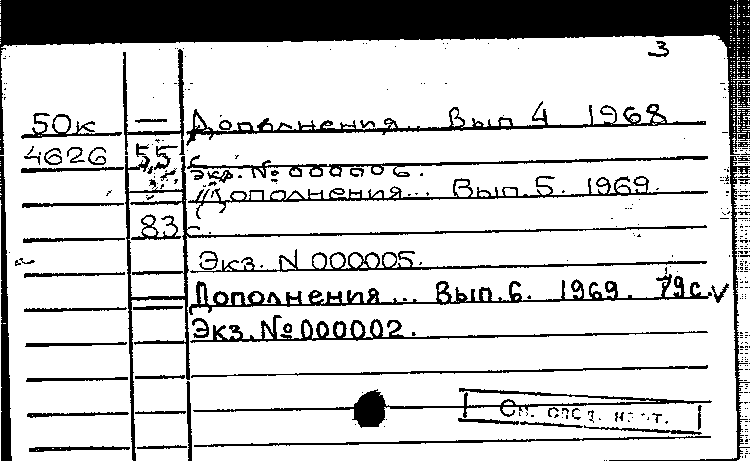 3
50к — Дополнения... Вып 4 1968
4626 55 с
Экз. № 000006.
Дополнения... Вып. 5. 1969.
83 с.
Экз. N 000005.
Дополнения... Вып. 6. 1969. 79с.
Экз. № 000002.
См. след. карт.